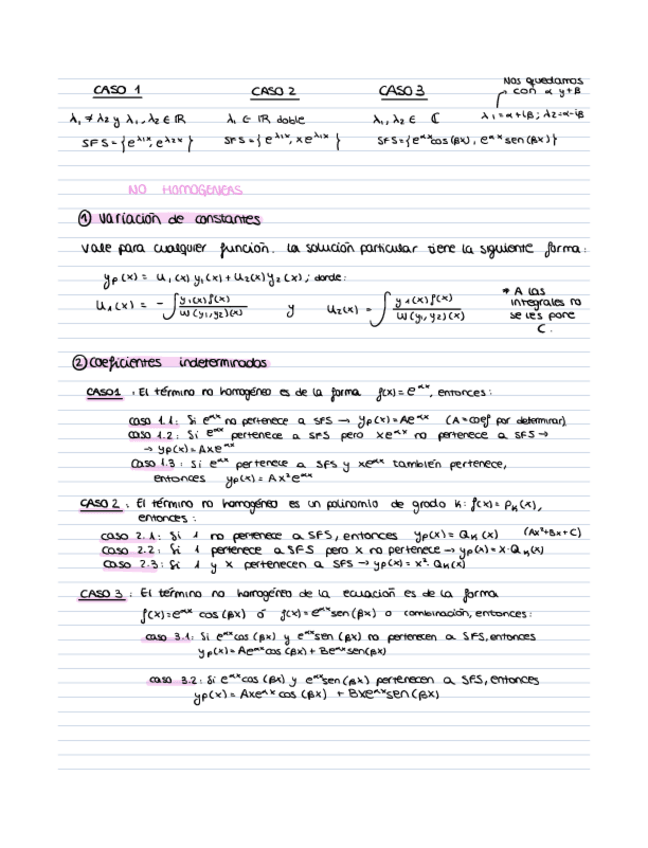 CASO 1 CASO 2 CASO 3 Nos quedamos con α y +β
λ₁ ≠ λ₂ y λ₁, λ₂ ∈ ℝ λ₁ ∈ ℝ doble λ₁, λ₂ ∈ ℂ λ₁=α+iβ; λ₂=α-iβ
SFS={e^λ₁x, e^λ₂x} SFS={e^λ₁x, xe^λ₁x} SFS={e^αx cos(βx), e^αx sen(βx)}
NO HOMOGENEAS
① Variación de constantes
Vale para cualquier función. La solución particular tiene la siguiente forma:
yp(x) = u₁(x) y₁(x) + u₂(x) y₂(x); donde:
u₁(x) = - ∫ y₁(x)f(x) / W(y₁,y₂)(x) y u₂(x) = ∫ y₁(x)f(x) / W(y₁,y₂)(x)
* A las
integrales no
se les pone
C.
② Coeficientes indeterminados
CASO1 : El término no homogéneo es de la forma f(x) = e^αx, entonces:
caso 1.1: Si e^αx no pertenece a SFS → yp(x)=Ae^αx (A=coef por determinar)
caso 1.2: Si e^αx pertenece a SFS pero xe^αx no pertenece a SFS →
→ yp(x)=Axe^αx
Caso 1.3: Si e^αx pertenece a SFS y xe^αx también pertenece,
entonces yp(x) = Ax²e^αx
CASO 2 : El término no homogéneo es un polinomio de grado K: f(x)=Pk(x),
entonces:
caso 2.1: Si 1 no pertenece a SFS, entonces yp(x) = Qk(x) (Ax²+Bx+C)
caso 2.2: Si 1 pertenece a SFS pero x no pertenece → yp(x)= x·Qk(x)
caso 2.3: Si 1 y x pertenecen a SFS → yp(x) = x²·Qk(x)
CASO 3 : El término no homogéneo de la ecuación es de la forma
f(x)=e^αx cos(βx) ó f(x)=e^αx sen(βx) o combinación, entonces:
caso 3.1: Si e^αx cos(βx) y e^αx sen(βx) no pertenecen a SFS, entonces
yp(x) = Ae^αx cos(βx) + Be^αx sen(βx)
caso 3.2: Si e^αx cos(βx) y e^αx sen(βx) pertenecen a SFS, entonces
yp(x) = Axe^αx cos(βx) + Bxe^αx sen(βx)